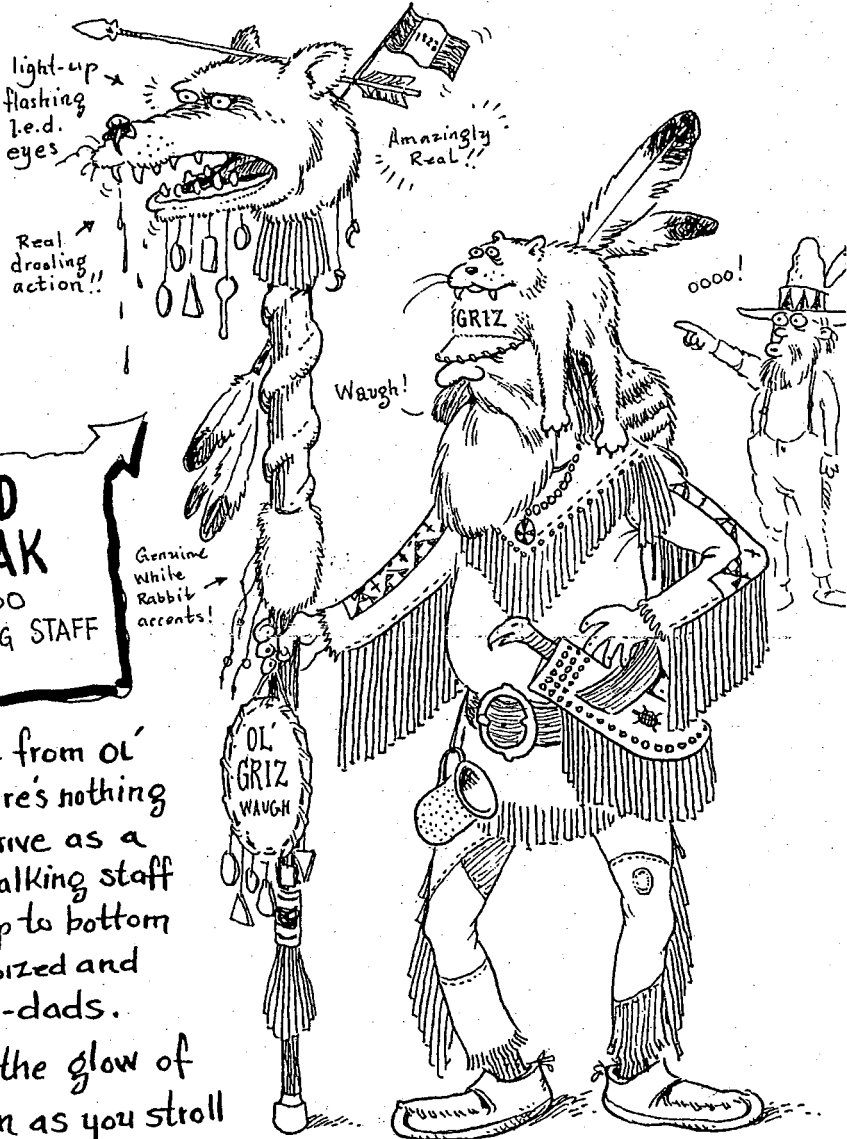 1922
light-up
flashing
l.e.d.
eyes
Amazingly
Real!!
Real
drooling
action!!
GRIZ
oooo!
Waugh!
D
AK
OO
G STAFF
Genuine
White
Rabbit
accents!
OL'
GRIZ
WAUGH
from OL'
re's nothing
ive as a
alking staff
p to bottom
sized and
-dads.
the glow of
n as you stroll